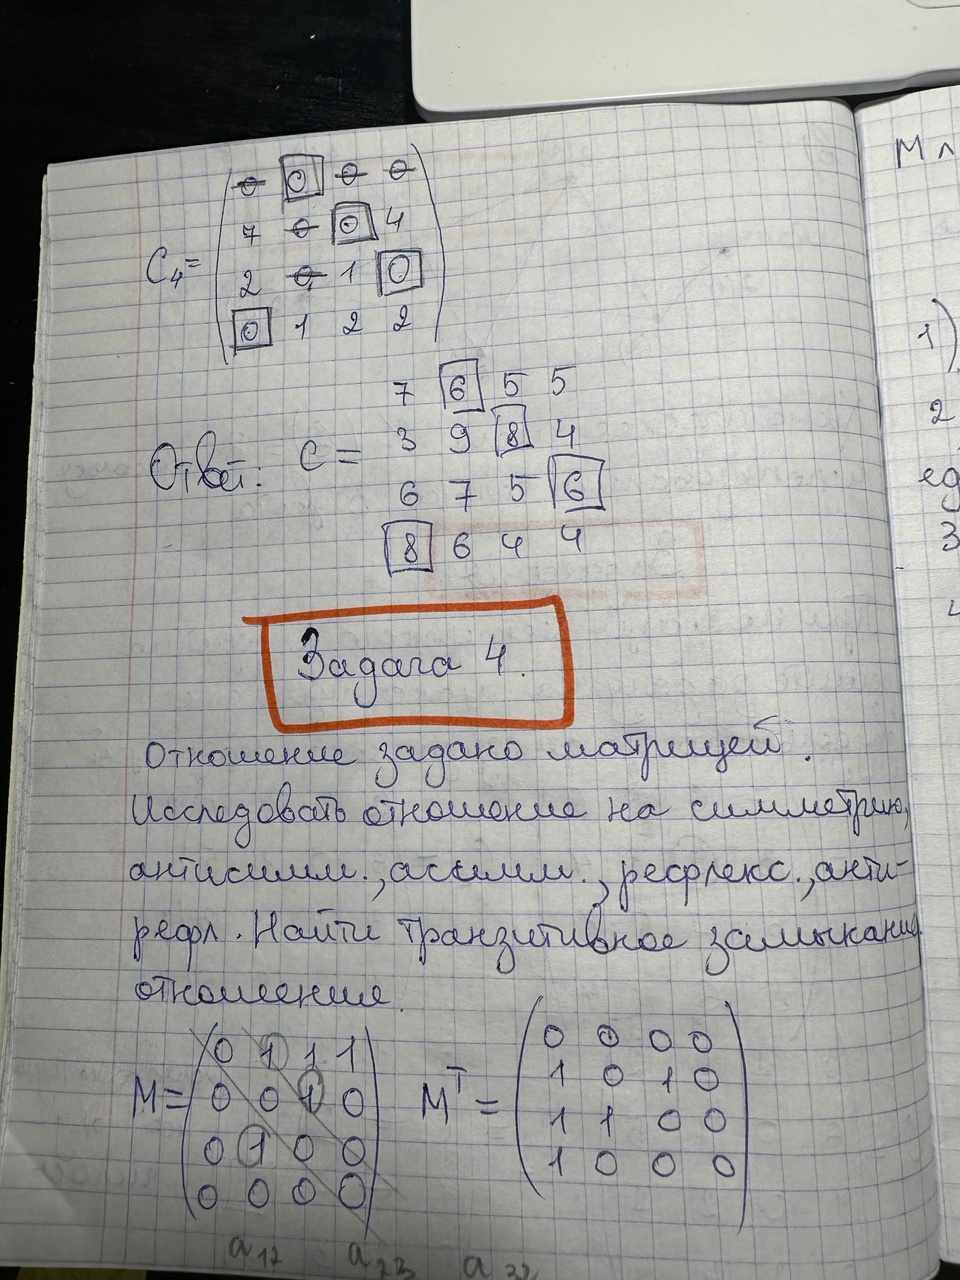 C₄ = ( 0 0 0 0
7 0 0 4
2 0 1 0
0 1 2 2 )
7 6 5 5
3 9 8 4
Ответ: C =
6 7 5 6
8 6 4 4
Задача 4.
Отношение задано матрицей.
Исследовать отношение на симметрию,
антисимм., асимм., рефлекс., анти-
рефл. Найти транзитивное замыкание
отношения.
M = ( 0 1 1 1
0 0 1 0
0 1 0 0
0 0 0 0 )
Mᵀ = ( 0 0 0 0
1 0 1 0
1 1 0 0
1 0 0 0 )
a₁₂ a₂₃ a₃₂
1)
2
ед
3